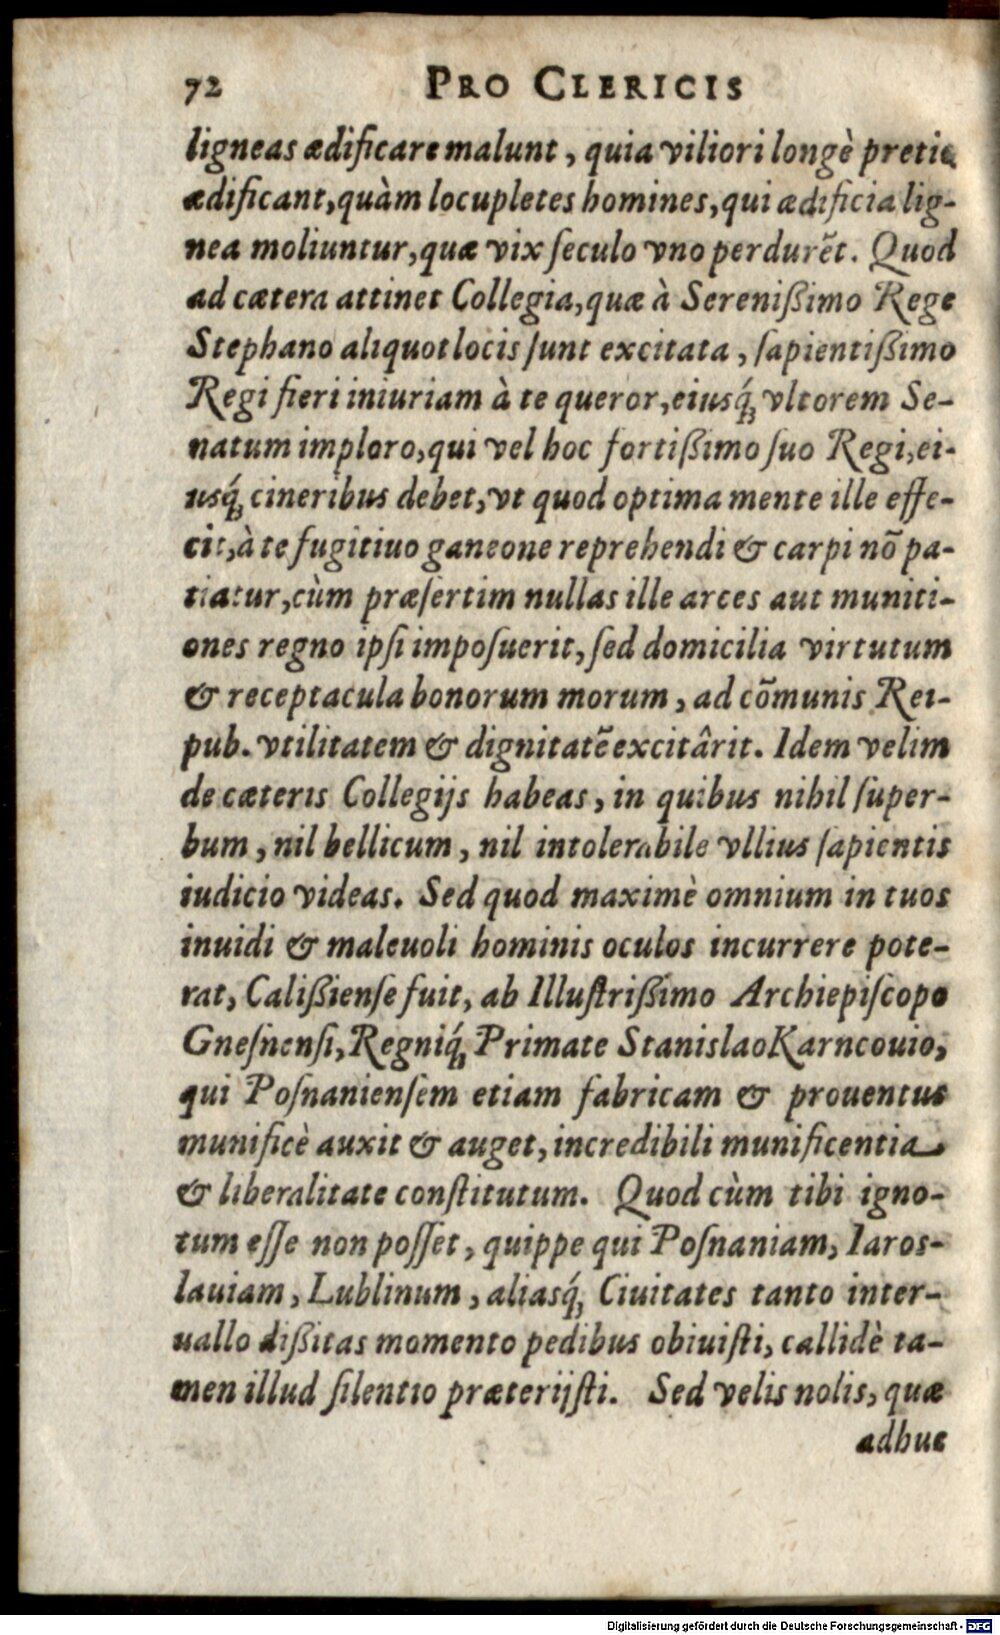 72 PRO CLERICIS
ligneas ædificare malunt, quia viliori longè pretio
ædificant, quàm locupletes homines, qui ædificia lig-
nea moliuntur, quæ vix ſeculo vno perdurẽt. Quod
ad cætera attinet Collegia, quæ à Sereniſsimo Rege
Stephano aliquot locis ſunt excitata, ſapientiſsimo
Regi fieri iniuriam à te queror, eiusq́; vltorem Se-
natum imploro, qui vel hoc fortiſsimo ſuo Regi, ei-
usq́; cineribus debet, vt quod optima mente ille effe-
cit, à te fugitiuo ganeone reprehendi & carpi nõ pa-
tiatur, cùm præſertim nullas ille arces aut muniti-
ones regno ipſi impoſuerit, ſed domicilia virtutum
& receptacula bonorum morum, ad cõmunis Rei-
pub. vtilitatem & dignitatẽ excitârit. Idem velim
de cæteris Collegijs habeas, in quibus nihil ſuper-
bum, nil bellicum, nil intolerabile vllius ſapientis
iudicio videas. Sed quod maximè omnium in tuos
inuidi & maleuoli hominis oculos incurrere pote-
rat, Caliſsienſe fuit, ab Illuſtriſsimo Archiepiſcopo
Gneſnenſi, Regniq́; Primate Stanislao Karncouio,
qui Poſnanienſem etiam fabricam & prouentus
munificè auxit & auget, incredibili munificentia
& liberalitate conſtitutum. Quod cùm tibi igno-
tum eſſe non poſſet, quippe qui Poſnaniam, Iaros-
lauiam, Lublinum, aliasq́; Ciuitates tanto inter-
uallo diſsitas momento pedibus obiuiſti, callidè ta-
men illud ſilentio præterijſti. Sed velis nolis, quæ
adhuc
Digitalisierung gefördert durch die Deutsche Forschungsgemeinschaft - DFG